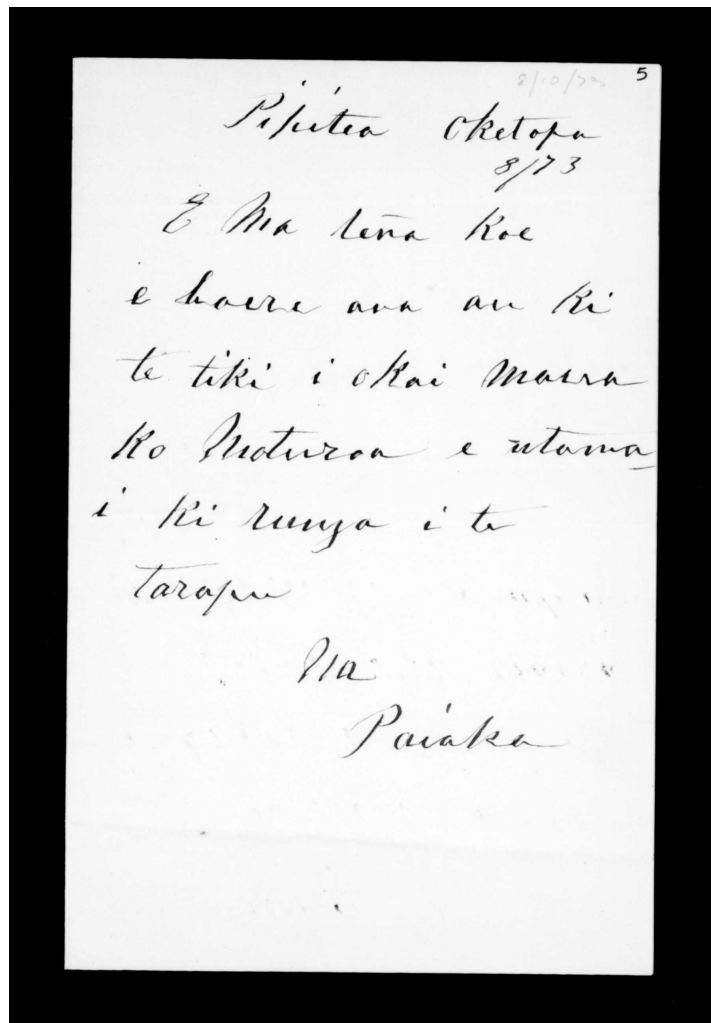 5
8/10/73
Pipitea Oketopa
8/73
E Ma tena Koe
e haere ana au Ki
te tiki i okai maera
Ko Moturoa e utama
i Ki runga i te
tarapu
Na
Paiaka